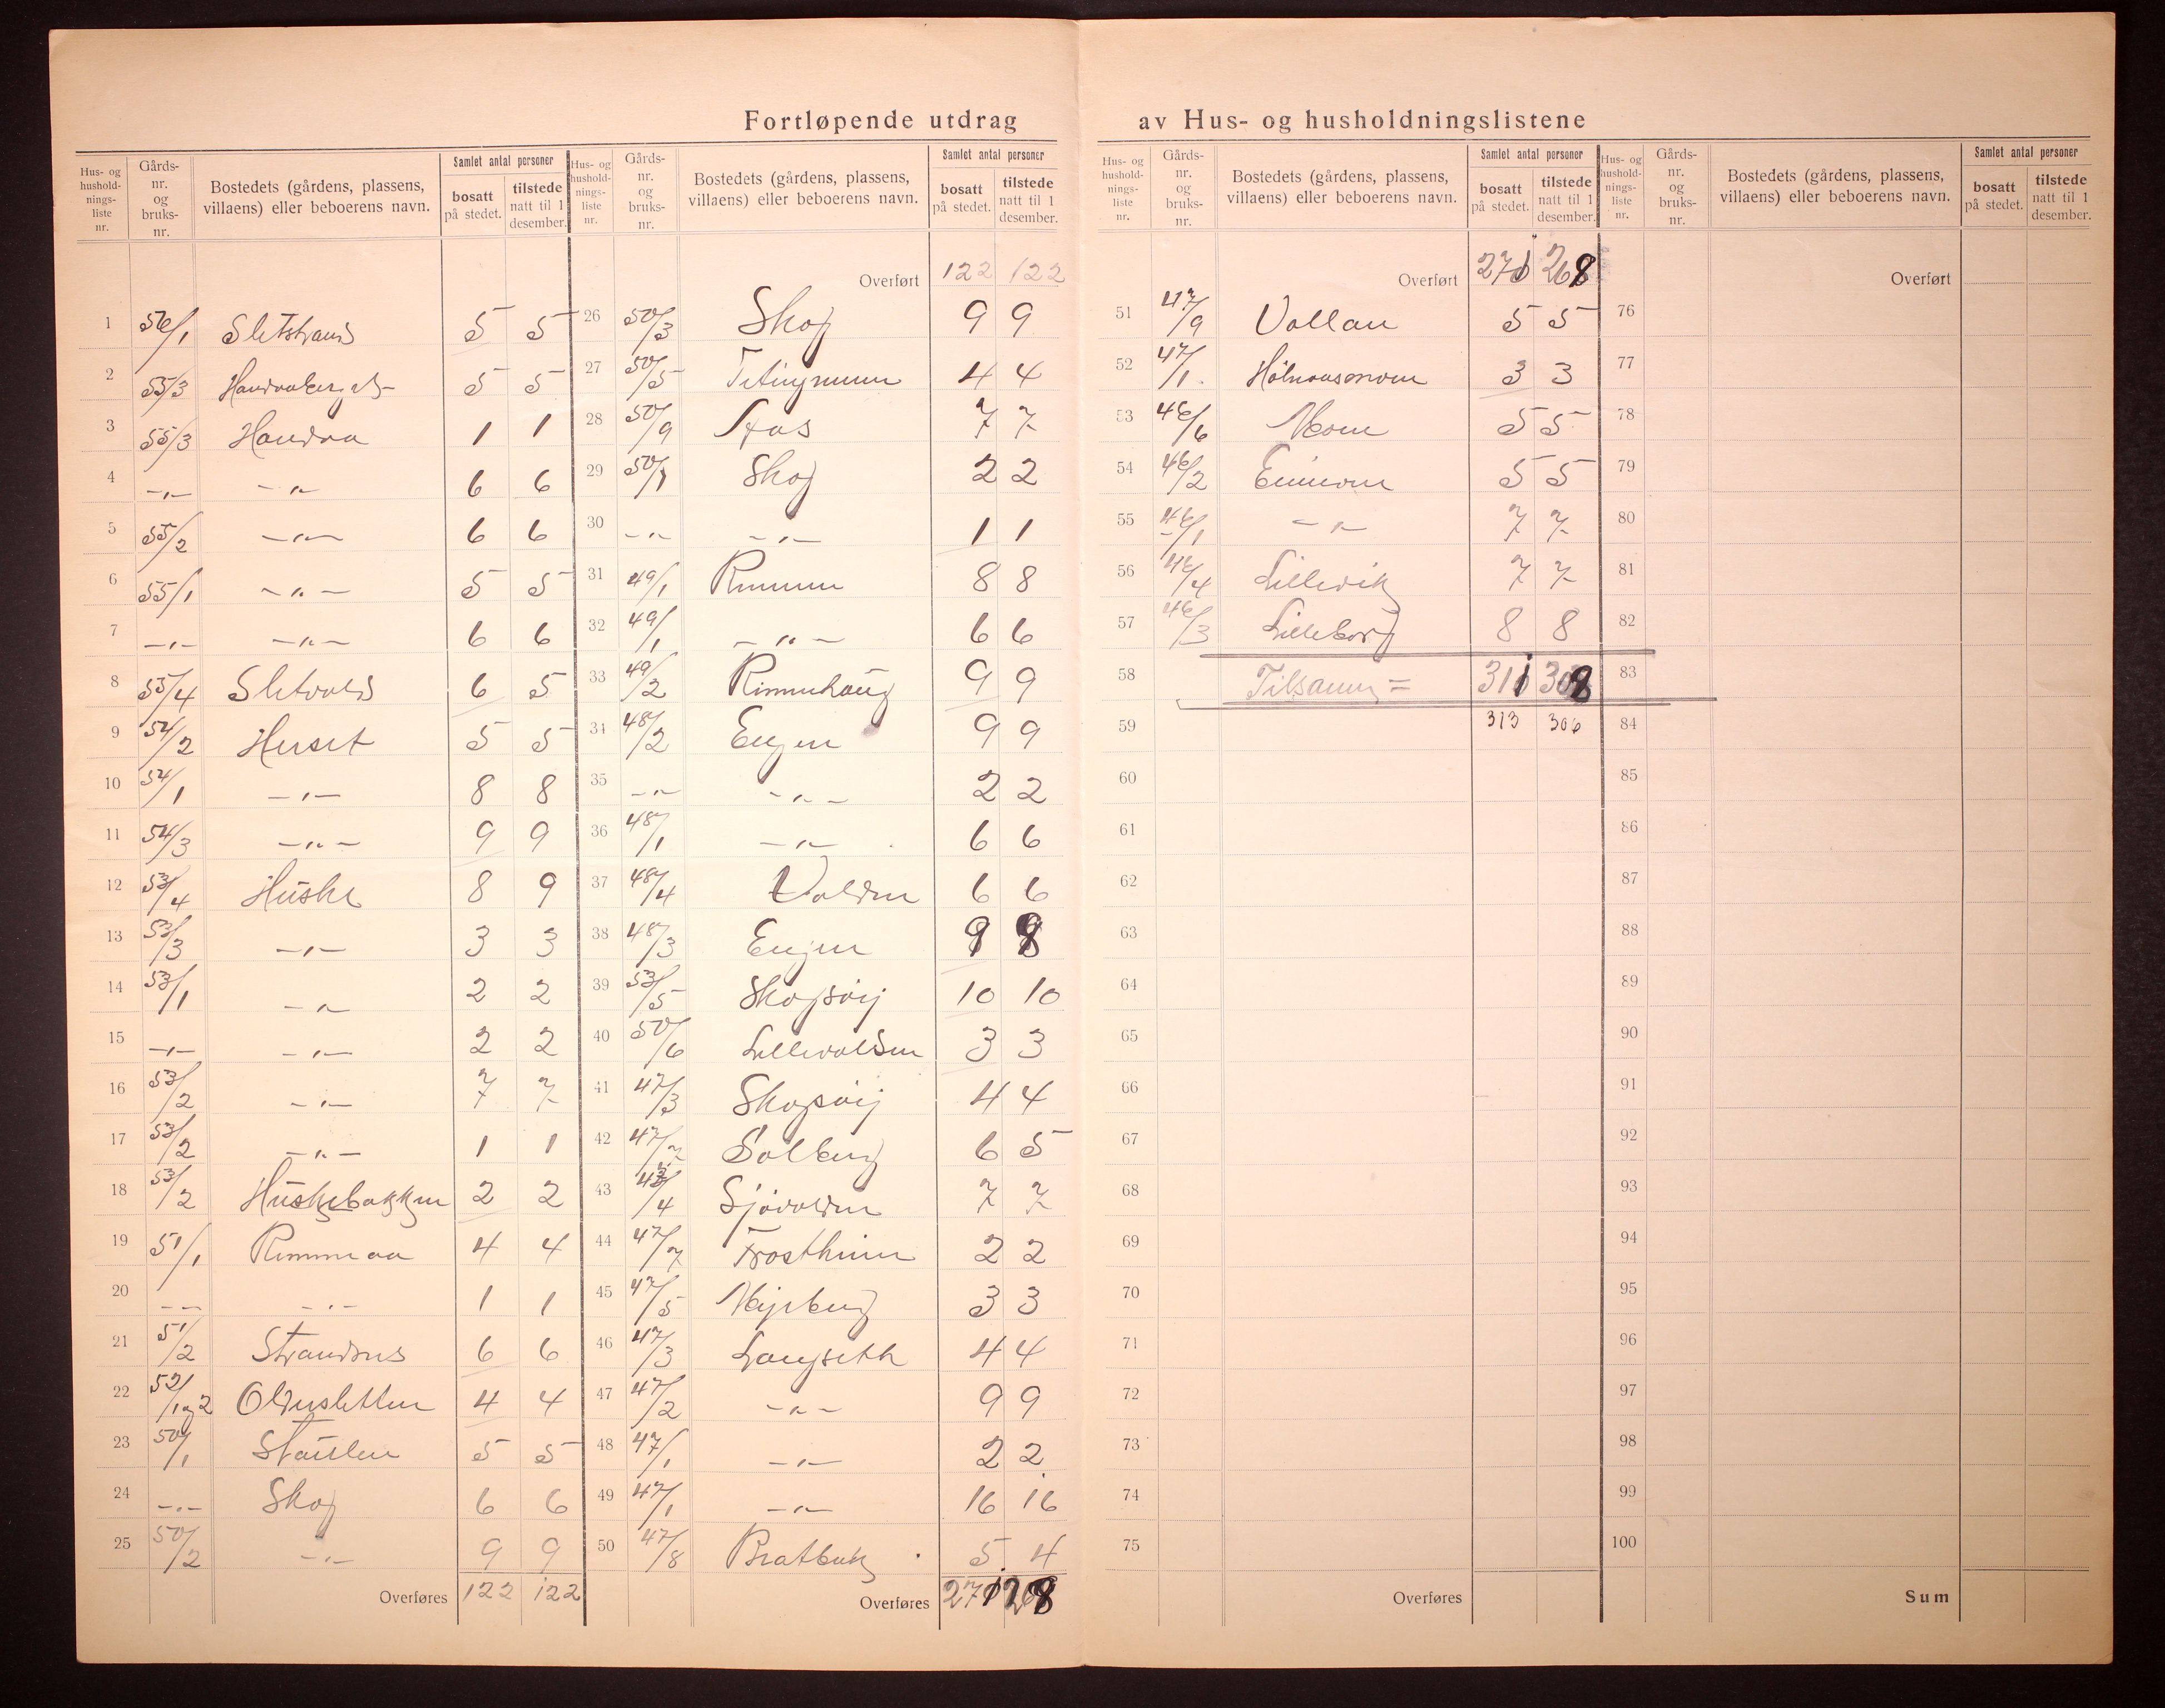 Fortløpende utdrag av Hus- og husholdningslistene
Hus- og hushold-nings-liste nr. | Gårds-nr. og bruks-nr. | Bostedets (gårdens, plassens, villaens) eller beboerens navn. | Samlet antal personer | bosatt på stedet. | tilstede natt til 1 desember.
1 56/1 Sletstrand 5 5
2 55/3 5 5
3 55/3 Handraa 1 1
4 -„- -„- 6 6
5 55/2 -„- 6 6
6 55/1 -„- 5 5
7 -„- -„- 6 6
8 55/4 Sletvold 6 5
9 54/2 Herset 5 5
10 54/1 -„- 8 8
11 54/3 -„- 9 9
12 53/4 Huske 8 9
13 53/3 -„- 3 3
14 53/1 -„- 2 2
15 -„- -„- 2 2
16 53/2 -„- 7 7
17 53/2 -„- 1 1
18 53/2 Huskebakken 2 2
19 51/1 Rimmaa 4 4
20 -„- -„- 1 1
21 51/2 6 6
22 52/1og2 Oldusletten 4 4
23 50/1 Stavlen 5 5
24 -„- Skog 6 6
25 50/2 -„- 9 9
Overføres 122 122
Hus- og hushold-nings-liste nr. | Gårds-nr. og bruks-nr. | Bostedets (gårdens, plassens, villaens) eller beboerens navn. | Samlet antal personer | bosatt på stedet. | tilstede natt til 1 desember.
Overført 122 122
26 50/3 Skog 9 9
27 50/5 4 4
28 50/9 7 7
29 50/1 Skog 2 2
30 -„- -„- 1 1
31 49/1 Rimmen 8 8
32 49/1 -„- 6 6
33 49/2 Rimmehaug 9 9
34 48/2 Engen 9 9
35 -„- -„- 2 2
36 48/1 -„- 6 6
37 48/4 Volden 6 6
38 48/3 Engen 9 8
39 53/5 Skogsøy 10 10
40 50/6 Lillevolden 3 3
41 47/3 Skogsøy 4 4
42 Solberg 6 5
43 Sjøvolden 7 7
44 47/7 Frostheim 2 2
45 47/5 3 3
46 47/3 Langseth 4 4
47 47/2 -„- 9 9
48 47/1 -„- 2 2
49 47/1 -„- 16 16
50 47/8 Bratbak 5 4
Overføres 271 268
Hus- og hushold-nings-liste nr. | Gårds-nr. og bruks-nr. | Bostedets (gårdens, plassens, villaens) eller beboerens navn. | Samlet antal personer | bosatt på stedet. | tilstede natt til 1 desember.
Overført 271 268
51 47/9 Vollan 5 5
52 47/1 3 3
53 46/6 5 5
54 46/2 5 5
55 46/1 -„- 7 7
56 46/4 Lillevik 7 7
57 46/3 Lilleborg 8 8
58 Tilsamm = 311 308
59 313 306
60
61
62
63
64
65
66
67
68
69
70
71
72
73
74
75
Overføres
Hus- og hushold-nings-liste nr. | Gårds-nr. og bruks-nr. | Bostedets (gårdens, plassens, villaens) eller beboerens navn. | Samlet antal personer | bosatt på stedet. | tilstede natt til 1 desember.
Overført
76
77
78
79
80
81
82
83
84
85
86
87
88
89
90
91
92
93
94
95
96
97
98
99
100
Sum